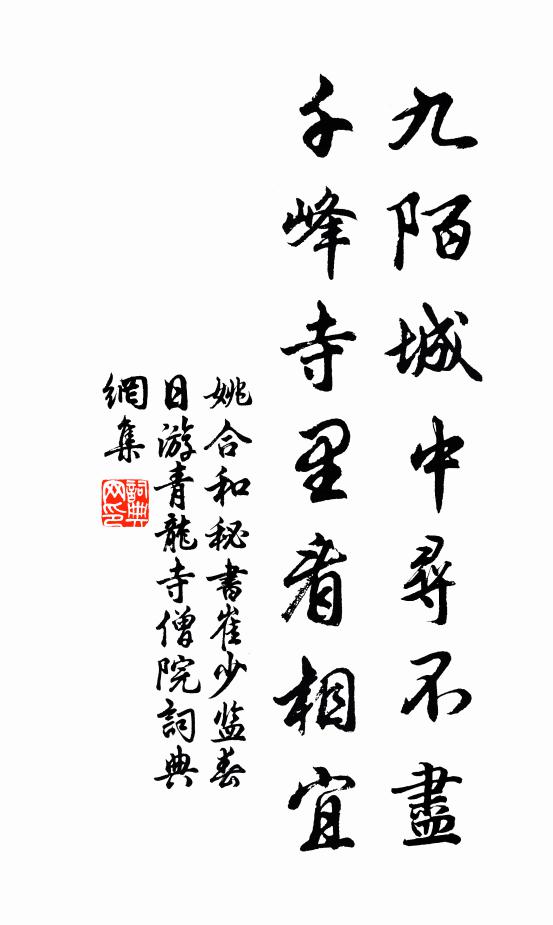 九陌城中尋不盡
千峰寺里看相宜
姚合和秘書崔少監春
日游青龍寺僧院詞典
網集
詞典
网印